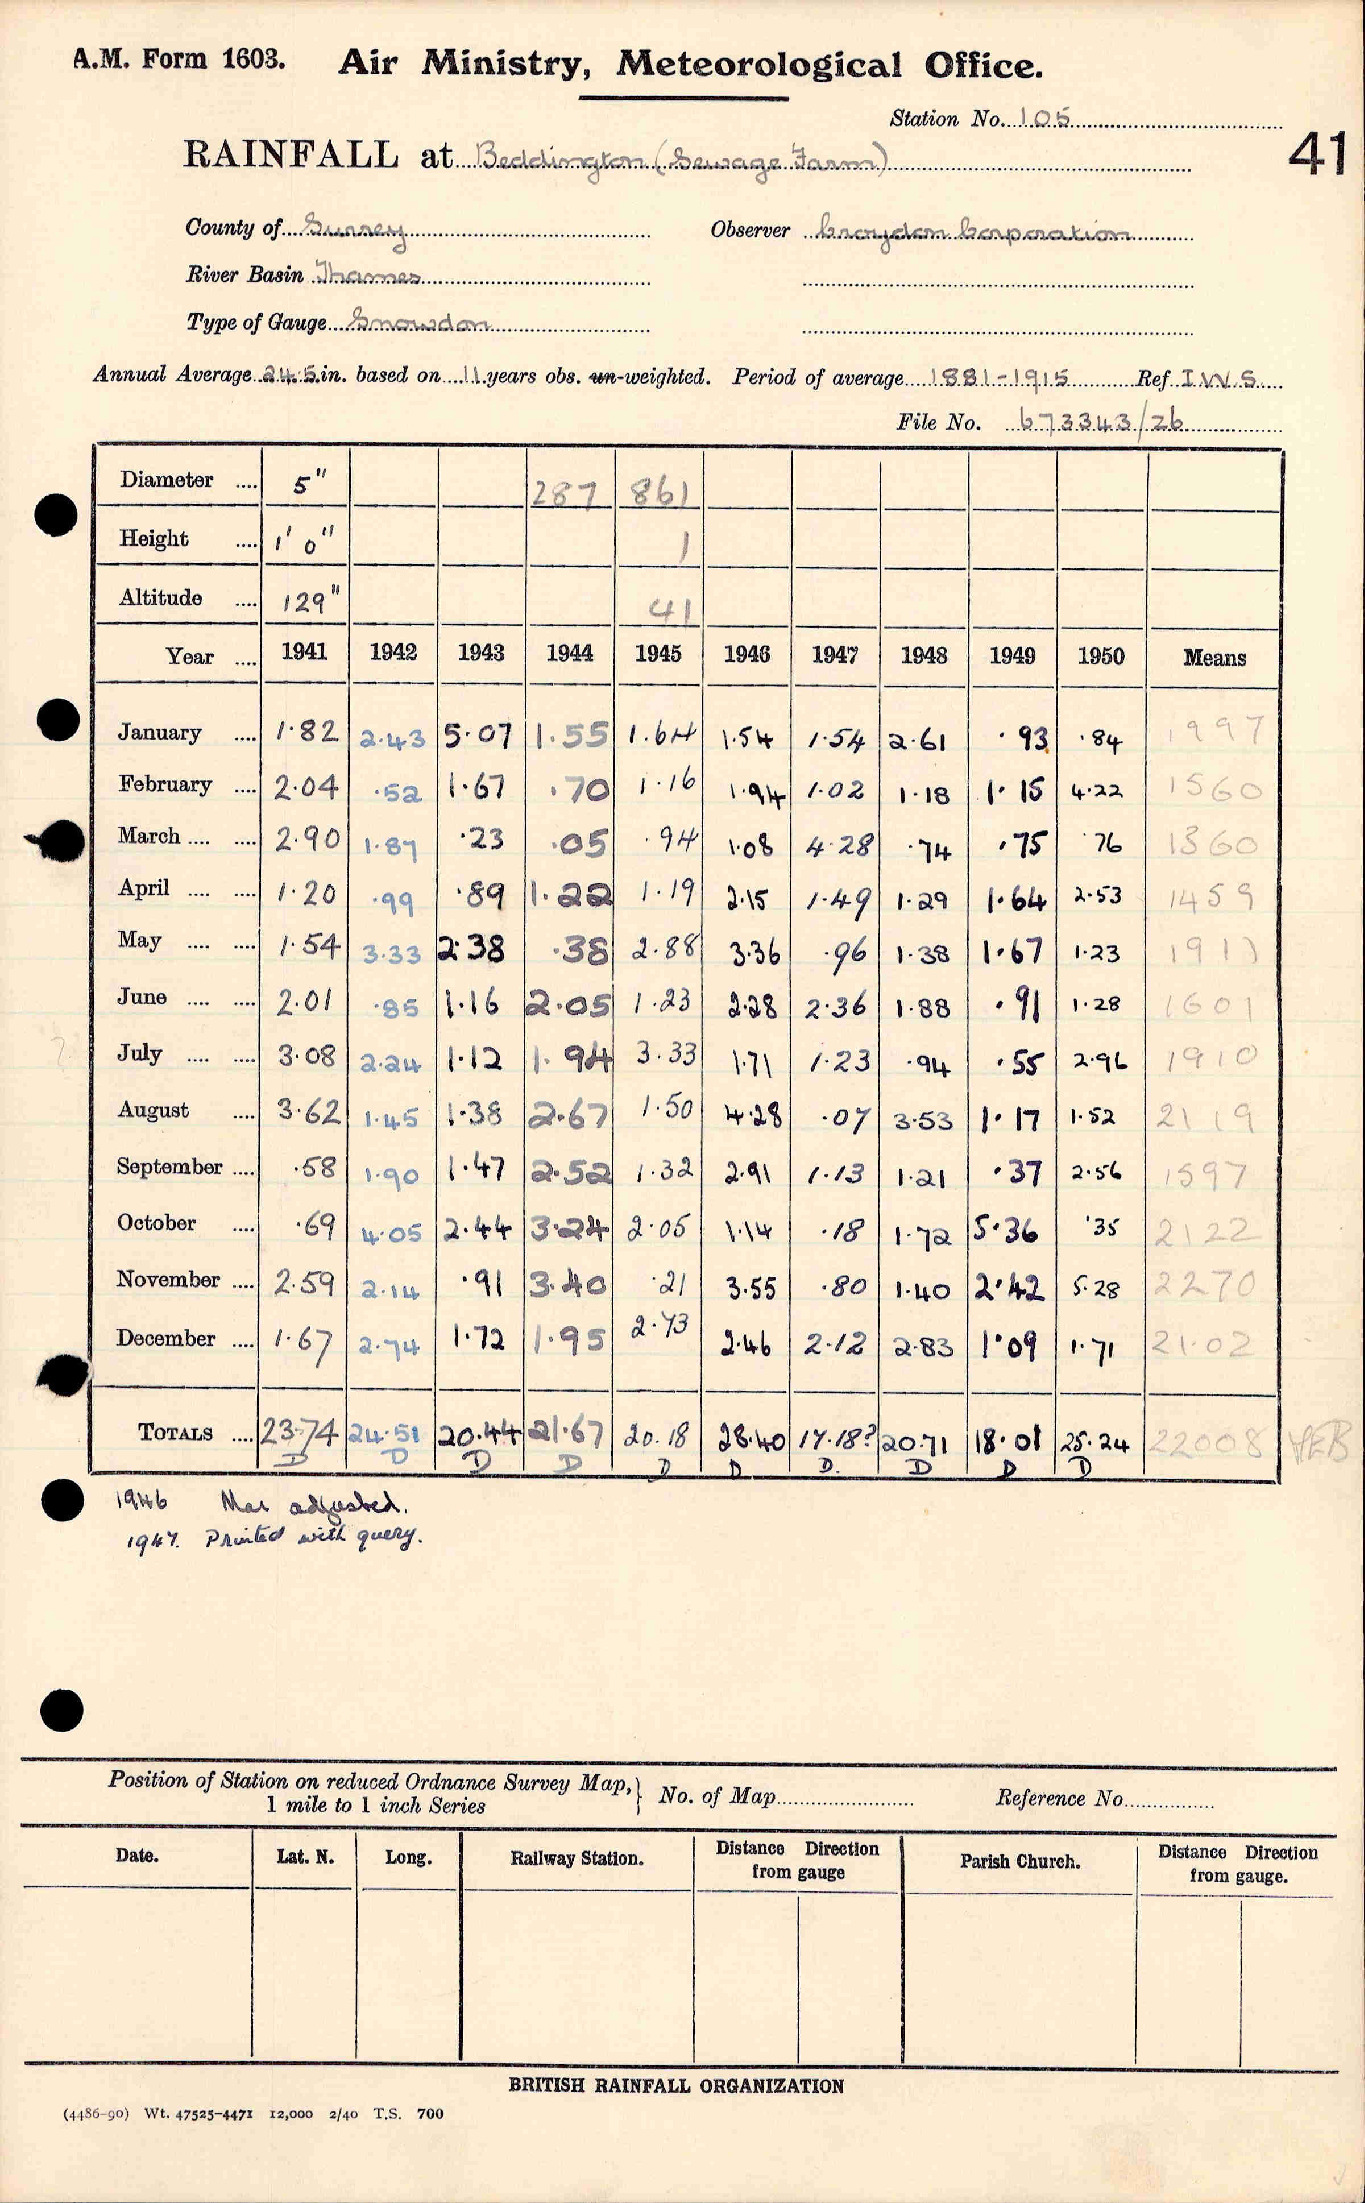 A.M. Form 1603. Air Ministry, Meteorological Office.
Station No. 105
41
RAINFALL at Beddington (Sewage Farm)
County of Surrey Observer Croydon Corporation
River Basin Thames
Type of Gauge Snowdon
Annual Average 24.5 in. based on 11 years obs. un-weighted. Period of average 1881-1915 Ref I.W.S.
File No. 673343/26
Diameter .... 5" 287 861
Height .... 1' 0" 1
Altitude .... 129" 41
Year .... 1941 1942 1943 1944 1945 1946 1947 1948 1949 1950 Means
January .... 1.82 2.43 5.07 1.55 1.64 1.54 1.54 2.61 .93 .84 1997
February .... 2.04 .52 1.67 .70 1.16 1.94 1.02 1.18 1.15 4.22 1560
March .... .... 2.90 1.87 .23 .05 .94 1.08 4.28 .74 .75 .76 1360
April .... .... 1.20 .99 .89 1.22 1.19 2.15 1.49 1.29 1.64 2.53 1459
May .... .... 1.54 3.33 2.38 .38 2.88 3.36 .96 1.38 1.67 1.23 1911
June .... .... 2.01 .85 1.16 2.05 1.23 2.28 2.36 1.88 .91 1.28 1601
July .... .... 3.08 2.24 1.12 1.94 3.33 1.71 1.23 .94 .55 2.96 1910
August .... 3.62 1.45 1.38 2.67 1.50 4.28 .07 3.53 1.17 1.52 2119
September .... .58 1.90 1.47 2.52 1.32 2.91 1.13 1.21 .37 2.56 1597
October .... .69 4.05 2.44 3.24 2.05 1.14 .18 1.72 5.36 .35 2122
November .... 2.59 2.14 .91 3.40 .21 3.55 .80 1.40 2.42 5.28 2270
December .... 1.67 2.74 1.72 1.95 2.73 2.46 2.12 2.83 1.09 1.71 21.02
TOTALS .... 23.74 24.51 20.44 21.67 20.18 28.40 17.18? 20.71 18.01 25.24 22008
D D D D D D D. D D D
1946 Mar adjusted.
1947. Printed with query.
Position of Station on reduced Ordnance Survey Map,} No. of Map Reference No.
1 mile to 1 inch Series
Date. Lat. N. Long. Railway Station. Distance from gauge Direction Parish Church. Distance from gauge. Direction
BRITISH RAINFALL ORGANIZATION
(4486-90) Wt. 47525-4471 12,000 2/40 T.S. 700